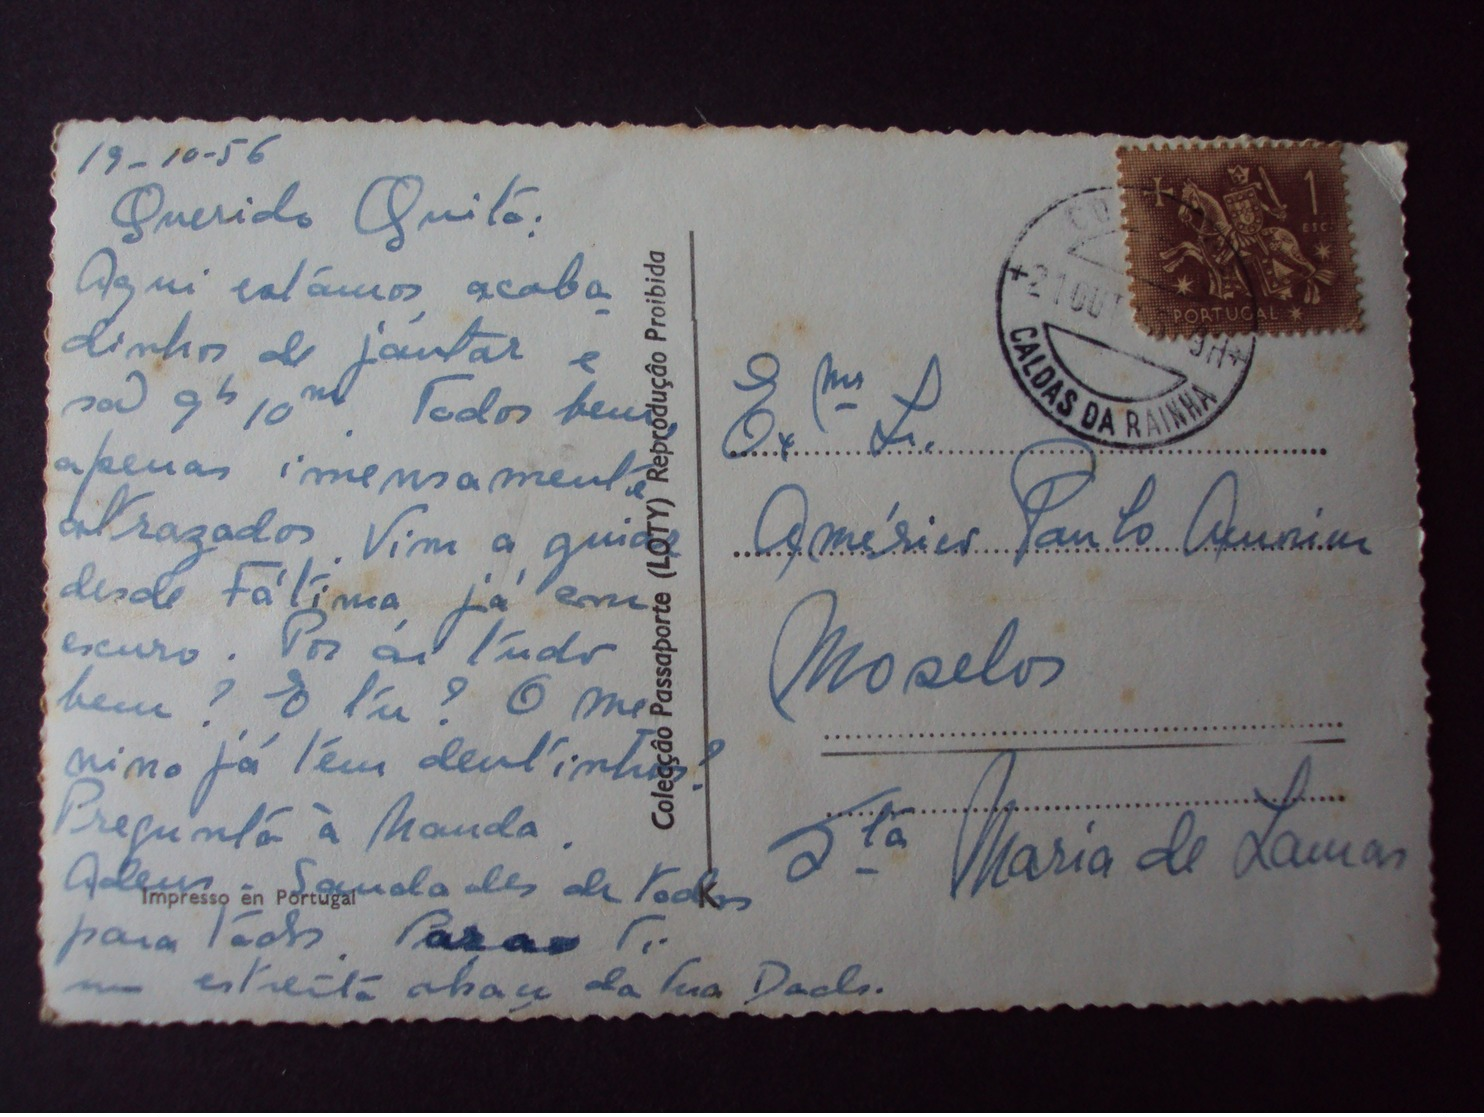 19-10-56
Querido Quitó.
Aqui estámos acaba-
dinhos de jántar e
são 9hs 10m. Todos bem,
apenas imensamente
atrazados. Vim a guiar
desde Fátima já em
escuro. Por ái tudo
bem? E tu? O me
nino já têm dentinhos?
Pregunta à Nanda.
Adeus. Saudades de todos
para todos. Para Ti
um estreito abraço da tua
Colecção Passaporte (LOTY) Reprodução Proibida
Impresso en Portugal
K
1
ESC.
PORTUGAL
21 OUT
9H
CALDAS DA RAINHA
Exmo Sr.
Américo Paulo Amorim
Moselos
Sta Maria de Lamas